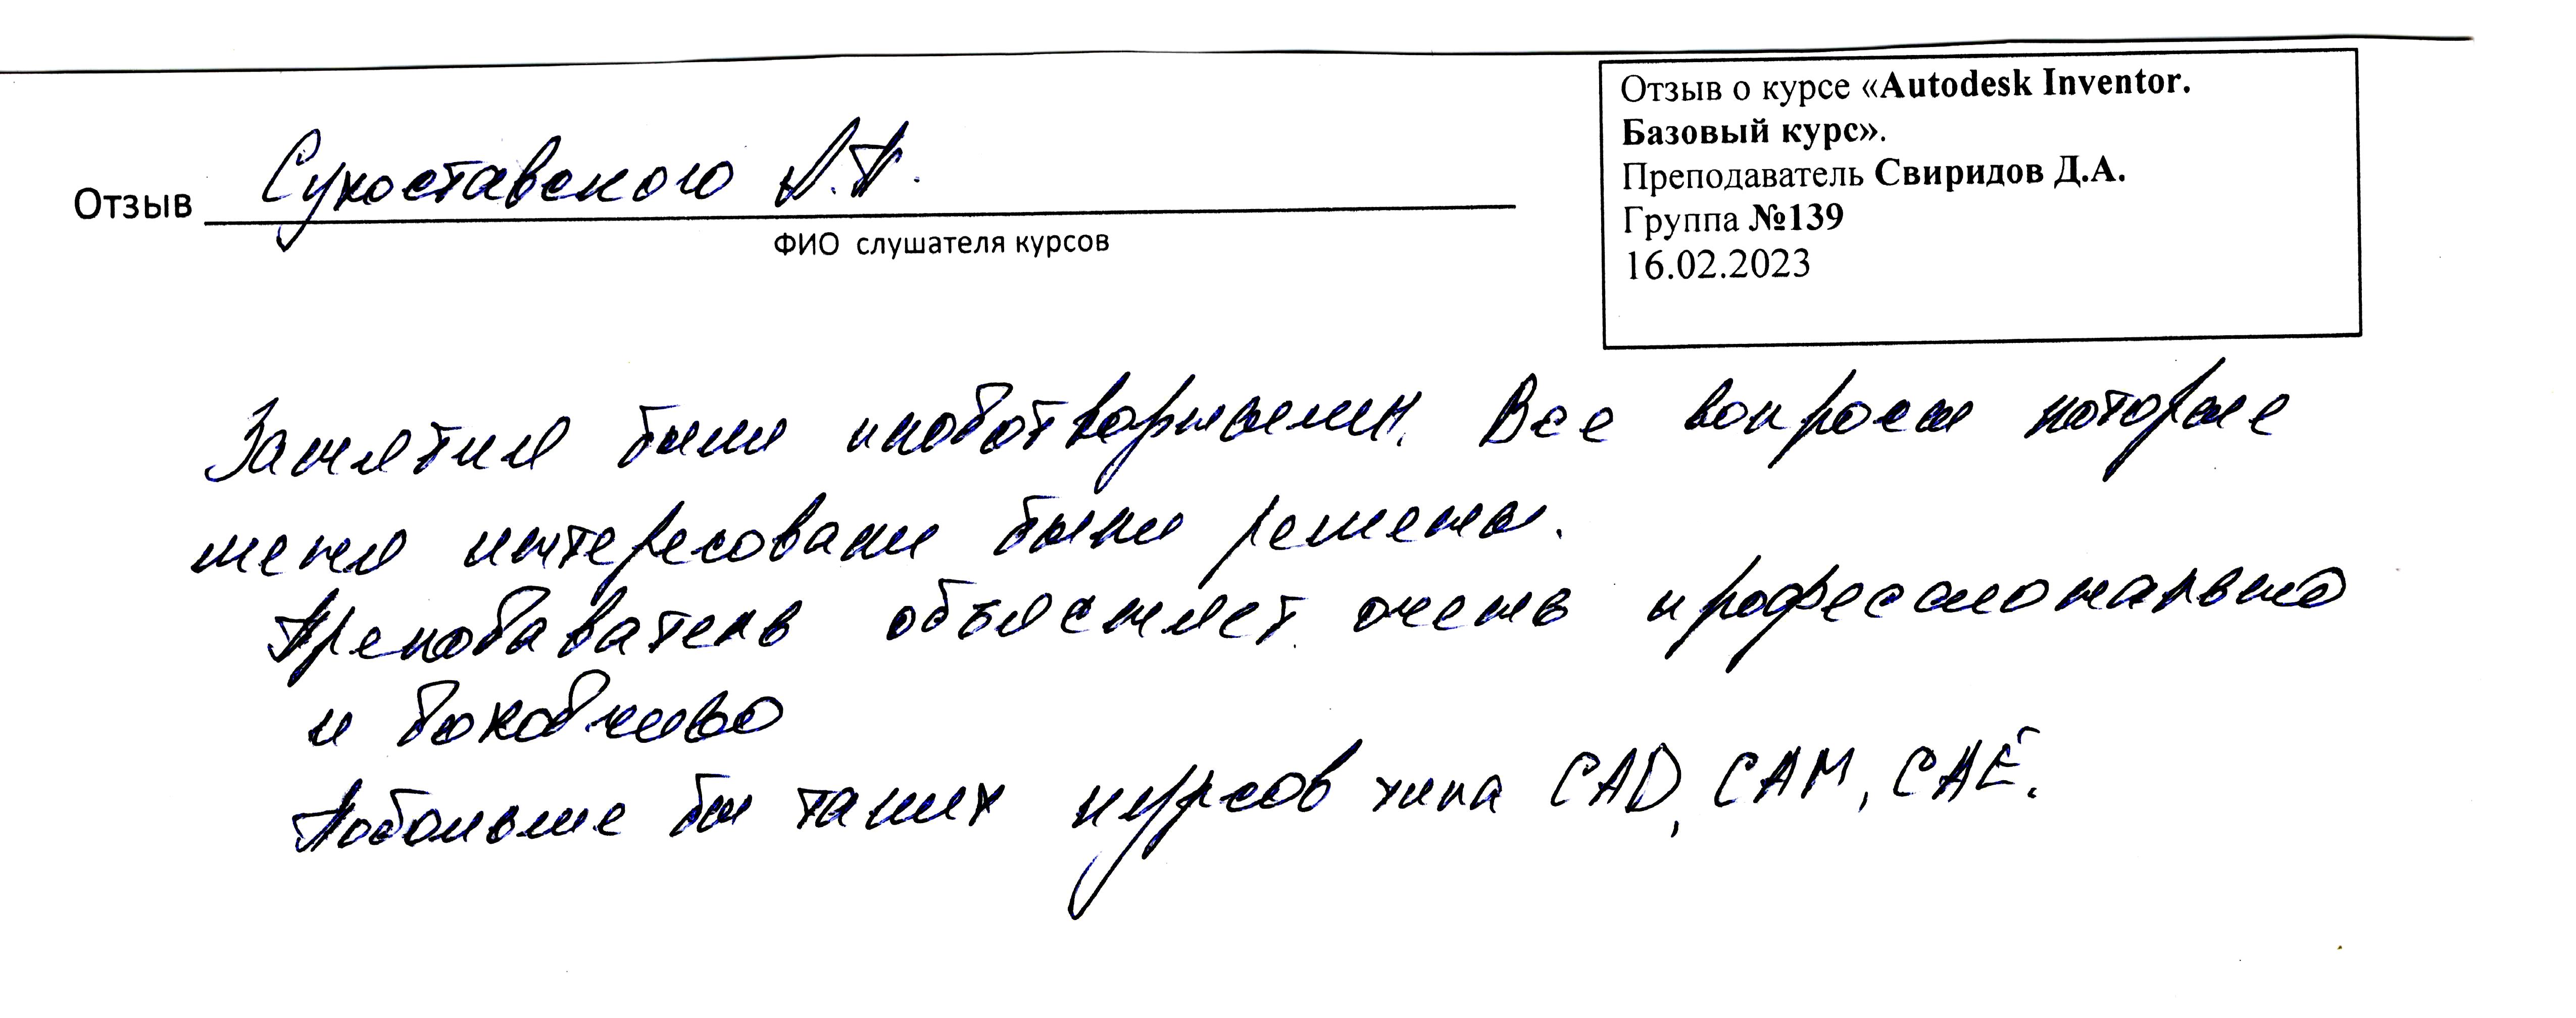 Отзыв о курсе «Autodesk Inventor.
Базовый курс».
Преподаватель Свиридов Д.А.
Группа №139
16.02.2023
Отзыв Сухоставского А.П.
ФИО слушателя курсов
Занятия были плодотворными. Все вопросы которые
меня интересовали были решены.
Преподаватель объясняет очень профессионально
и доходчиво
Побольше бы таких курсов типа CAD, CAM, CAE.